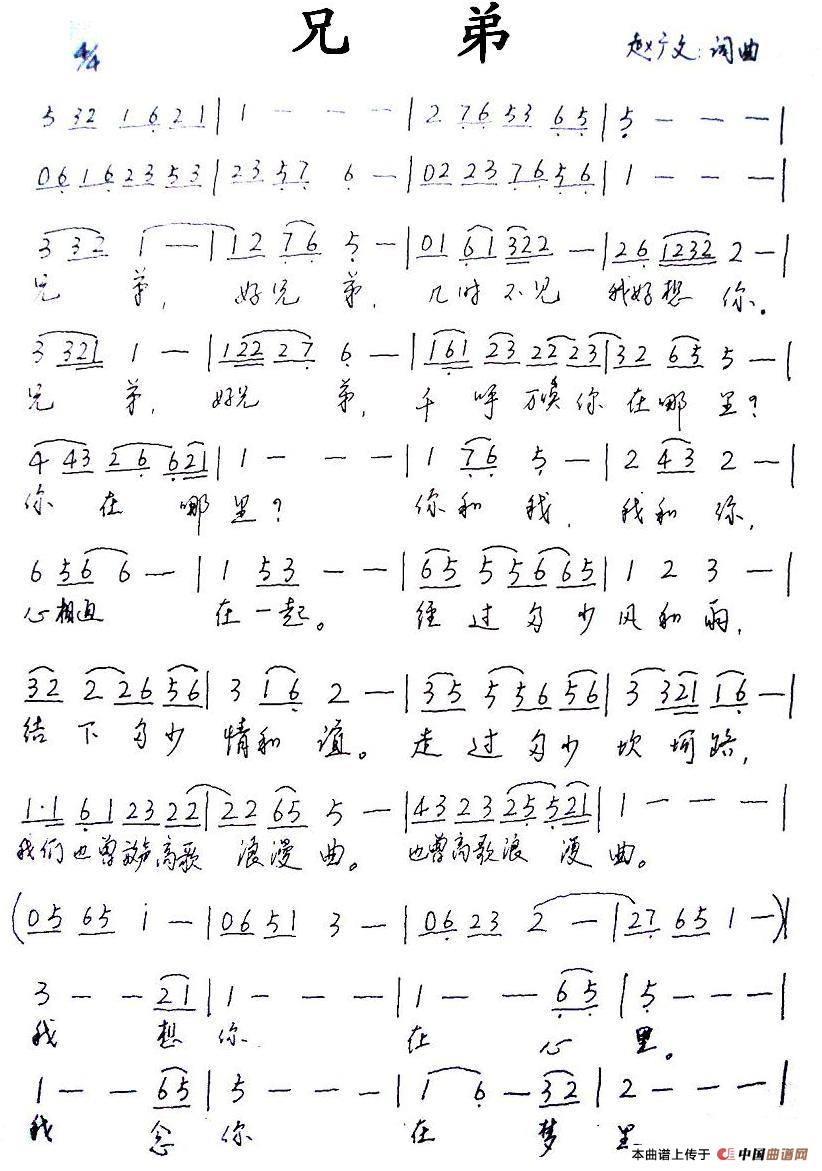 兄 弟
4/4
赵广文：词曲
5 32 16 21 | 1 - - - | 2 76 53 65 | 5 - - - |
06 16 23 53 | 23 57 6 - | 02 23 76 56 | 1 - - - |
3 32 1 - | 12 76 5 - | 01 61 322 - | 26 1232 2 - |
兄 弟， 好兄 弟， 几时不见 我好想 你。
3 321 1 - | 122 27 6 - | 161 23 22 23 | 32 65 5 - |
兄 弟， 好兄 弟， 千呼万唤你在哪 里？
4 43 26 621 | 1 - - - | 1 76 5 - | 2 43 2 - |
你 在 哪里？ 你和我， 我和你，
6 56 6 - | 1 53 - - | 65 55 6 65 | 1 2 3 - |
心相通 在一起。 经过多少风和雨，
32 2 26 56 | 3 16 2 - | 35 55 6 56 | 3 321 16 - |
结下多少 情和谊。 走过多少 坎坷路，
1·1 61 23 22 | 22 65 5 - | 43 23 25 521 | 1 - - - |
我们也曾放声高歌 浪漫曲。 也曾高歌浪漫曲。
(05 65 i - | 06 51 3 - | 06 23 2 - | 27 65 1 -)|
3 - - 21 | 1 - - - | 1 - - 65 | 5 - - - |
我 想 你 在 心 里。
1 - - 65 | 5 - - - | 1 6 - 32 | 2 - - - |
我 念 你 在 梦 里
本曲谱上传于 中国曲谱网